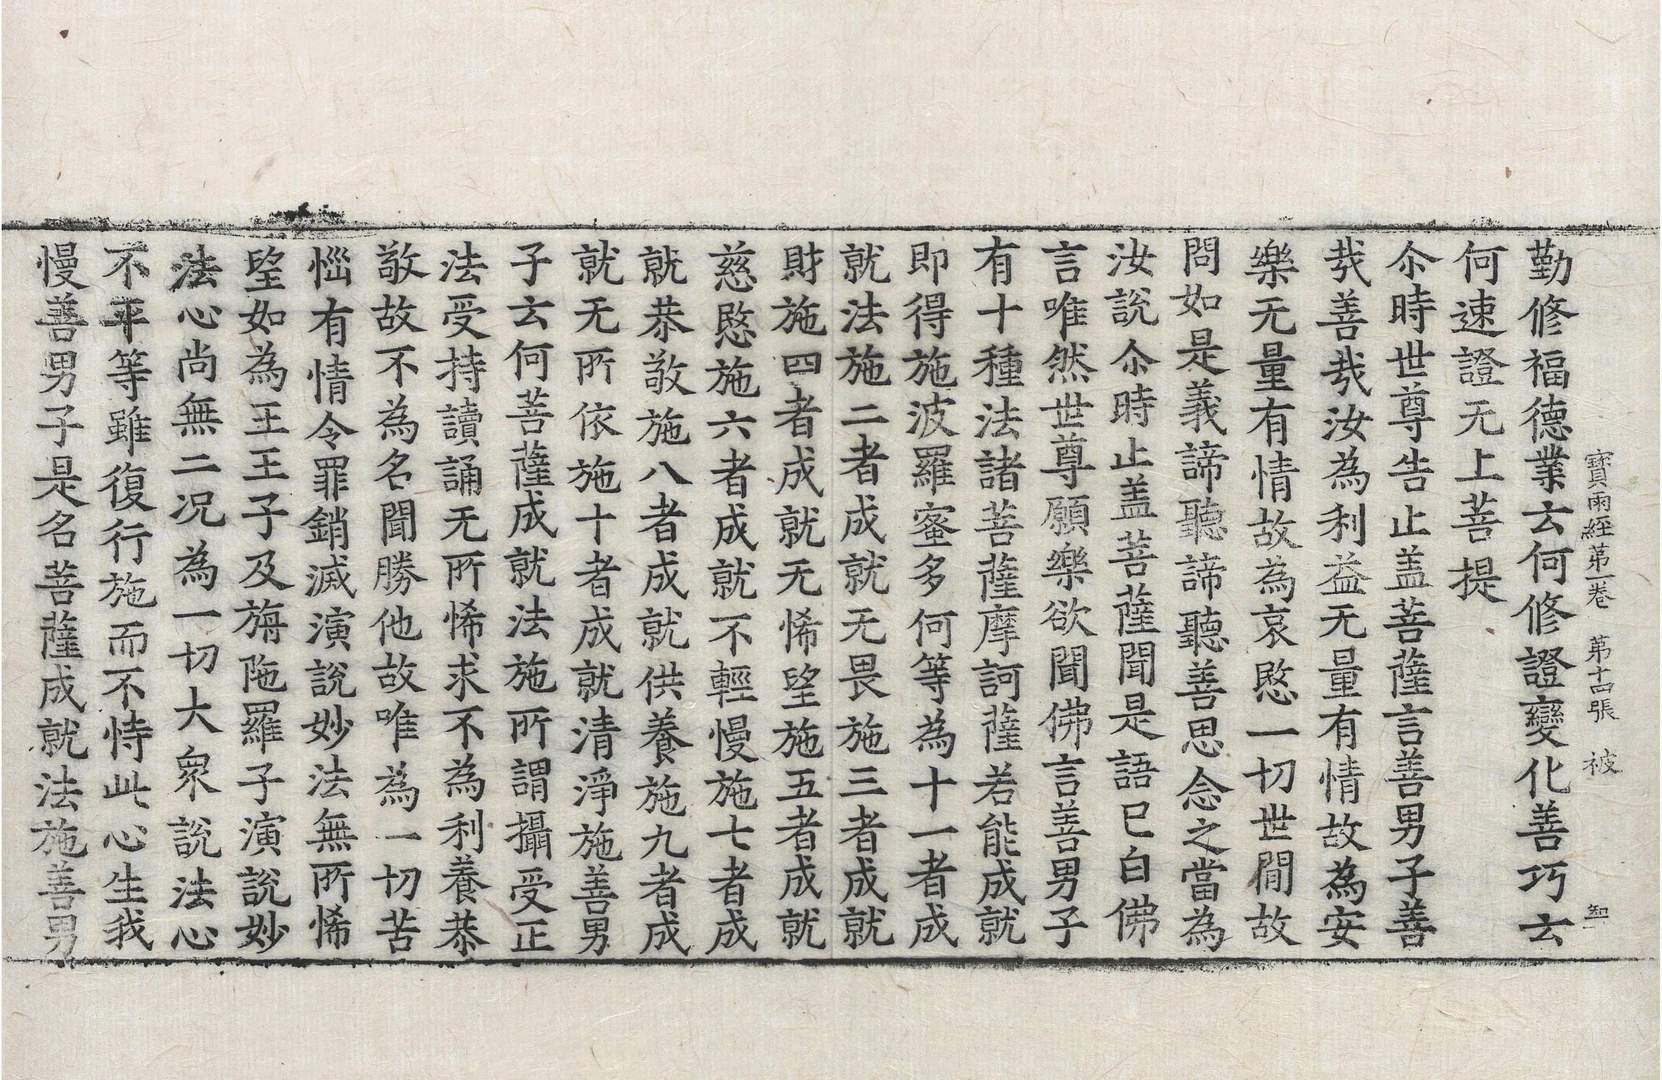 寶雨經第一卷 第十四張 被
勤修福德業云何修證變化善巧云
何速證无上菩提
尒時世尊告止盖菩薩言善男子善
㢤善㢤汝為利益无量有情故為安
樂无量有情故為哀愍一切世閒故
問如是義諦聽諦聽善思念之當為
汝說尒時止盖菩薩聞是語已白佛
言唯然世尊願樂欲聞佛言善男子
有十種法諸菩薩摩訶薩若能成就
即得施波羅蜜多何等為十一者成
就法施二者成就无畏施三者成就
財施四者成就无悕望施五者成就
慈愍施六者成就不輕慢施七者成
就恭敬施八者成就供養施九者成
就无所依施十者成就清淨施善男
子云何菩薩成就法施所謂攝受正
法受持讀誦无所悕求不為利養恭
敬故不為名聞勝他故唯為一切苦
惱有情令罪銷滅演說妙法無所悕
望如為王王子及旃陁羅子演說妙
法心尚無二况為一切大衆說法心
不平等雖復行施而不恃此心生我
慢善男子是名菩薩成就法施善男